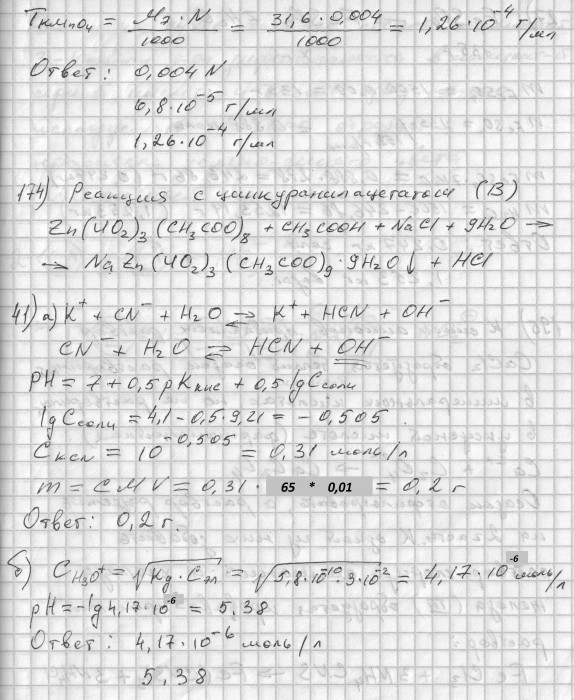 T KMnO₄ = Mэ · N / 1000 = 31,6 · 0,004 / 1000 = 1,26 · 10⁻⁴ г/мл
Ответ: 0,004 N
6,8 · 10⁻⁵ г/мл
1,26 · 10⁻⁴ г/мл
174) Реакция с цинкуранилацетатом (В)
Zn(UO₂)₃(CH₃COO)₈ + CH₃COOH + NaCl + 9H₂O →
→ NaZn(UO₂)₃(CH₃COO)₉ · 9H₂O↓ + HCl
41) а) K⁺ + CN⁻ + H₂O ⇄ K⁺ + HCN + OH⁻
CN⁻ + H₂O ⇄ HCN + OH⁻
pH = 7 + 0,5 pKкис + 0,5 lgCсоли
lgCсоли = 4,1 - 0,5 · 9,21 = - 0,505
CKCN = 10⁻⁰,⁵⁰⁵ = 0,31 моль/л
m = CMV = 0,31 · 65 * 0,01 = 0,2 г
Ответ: 0,2 г.
б) C H₃O⁺ = √Kд · Cэл = √5,8 · 10⁻¹⁰ · 3 · 10⁻² = 4,17 · 10⁻⁶ моль/л
pH = -lg 4,17 · 10⁻⁶ = 5,38
Ответ: 4,17 · 10⁻⁶ моль/л
5,38